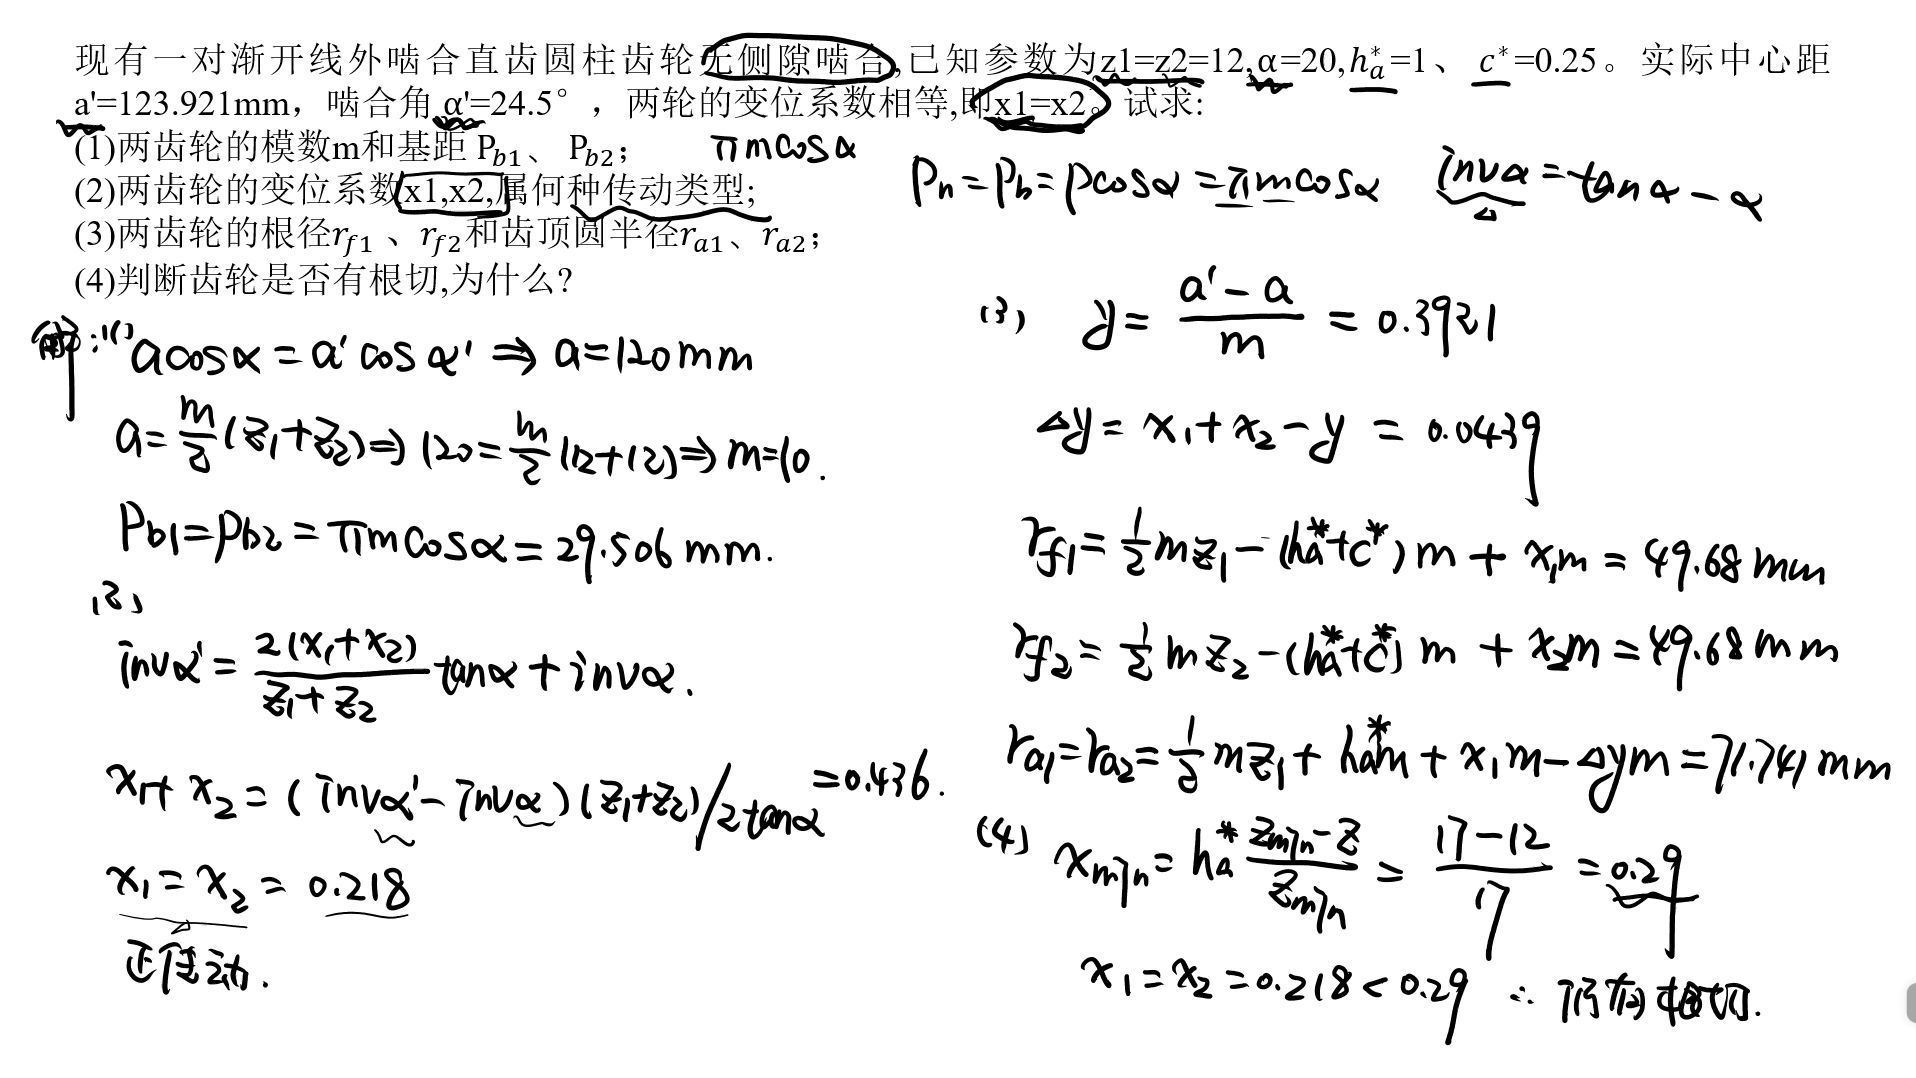 现有一对渐开线外啮合直齿圆柱齿轮无侧隙啮合,已知参数为z1=z2=12,α=20,hₐ*=1、 c*=0.25。实际中心距
a'=123.921mm，啮合角 α'=24.5°，两轮的变位系数相等,即x1=x2。试求:
(1)两齿轮的模数m和基距 P_b1、 P_b2；
πmcosα
(2)两齿轮的变位系数x1,x2,属何种传动类型;
(3)两齿轮的根径r_f1 、r_f2和齿顶圆半径r_a1、r_a2；
(4)判断齿轮是否有根切,为什么?
Pn=Pb=Pcosα=πmcosα
invα=tanα-α
解:(1) acosα=a'cosα' ⇒ a=120mm
a=m/2(z₁+z₂)⇒120=m/2(12+12)⇒m=10.
Pb1=Pb2=πmcosα=29.506mm.
(2)
invα'=2(x₁+x₂)/(z₁+z₂) tanα+invα.
x₁+x₂=(invα'-invα)(z₁+z₂)/2tanα=0.436.
x₁=x₂=0.218
正传动.
(3) y=(a'-a)/m=0.3921
△y=x₁+x₂-y=0.0439
r_f1=1/2mz₁-(ha*+c*)m+x₁m=49.68mm
r_f2=1/2mz₂-(ha*+c*)m+x₂m=49.68mm
r_a1=r_a2=1/2mz₁+ha*m+x₁m-△ym=71.741mm
(4) xmin=ha*(zmin-z)/zmin=(17-12)/17=0.29
x₁=x₂=0.218<0.29 ∴ 所有根切.